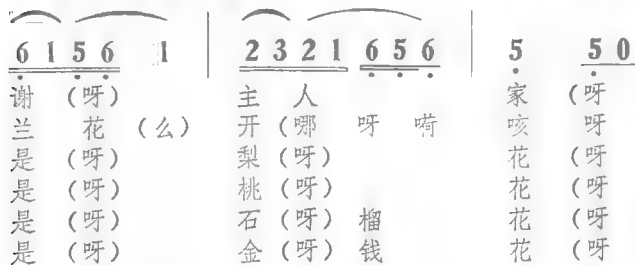 6 1 5 6 1 | 2 3 2 1 6 5 6 | 5 5 0
谢 (呀) 主 人 家 (呀
兰 花 (么) 开 (哪 呀 嗬 咳 呀
是 (呀) 梨 (呀) 花 (呀
是 (呀) 桃 (呀) 花 (呀
是 (呀) 石 (呀) 榴 花 (呀
是 (呀) 金 (呀) 钱 花 (呀